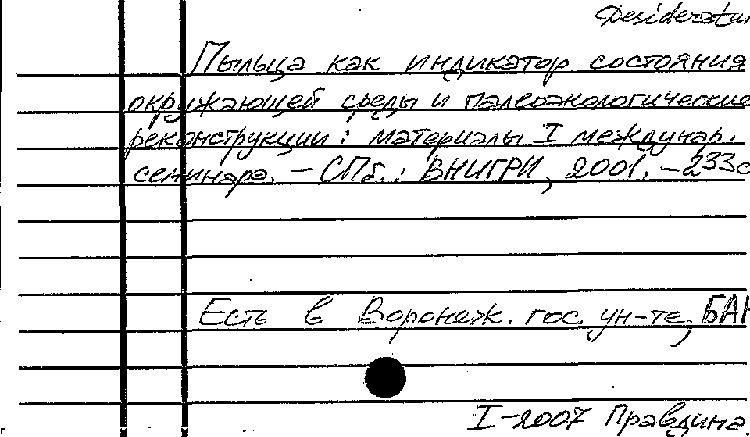 Desideratu
Пыльца как индикатор состояния
окружающей среды и палеоэкологические
реконструкции: материалы I междунар.
семинара. – СПб.: ВНИГРИ, 2001. – 233с
Есть в Воронеж. гос. ун-те, БАН
I-2007 Правдина.